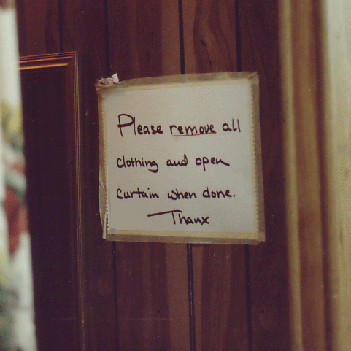 Please remove all
clothing and open
curtain when done.
Thanx